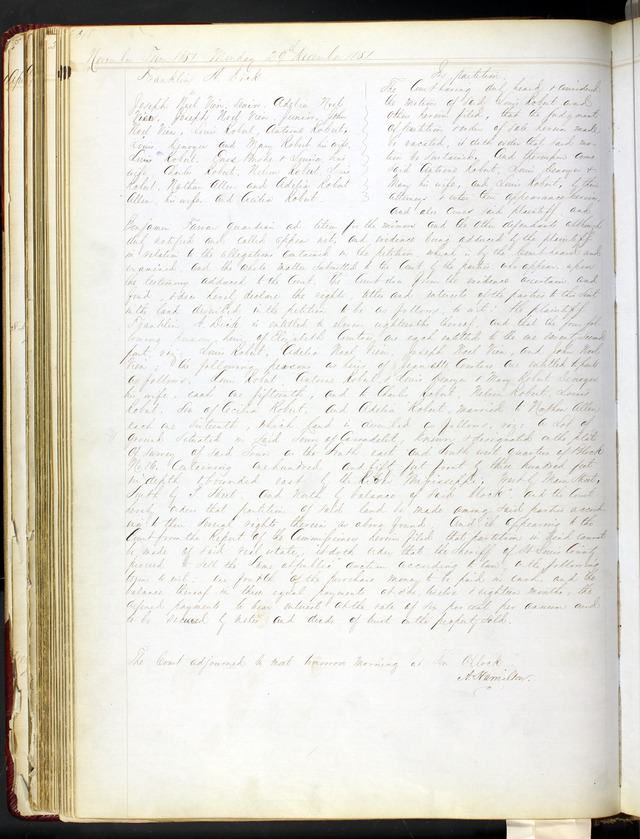 November Term 1851 Monday 29th December 1851
Franklin A. Dick
Joseph Noel Vien, Senior, Adelia Noel
Vien, Joseph Noel Vien Junior, John
Noel Vien, Louis Robert, Antoine Robert,
Louis and Mary Robert his wife,
Louis Robert, Louis & Louisa his
wife, Charles Robert, Nelson Robert, Louis
Robert, Nathan Allen and Adelia Robert
Allen, his wife and Cecilia Robert
In partition.
The Court having duly heard & considered
the motion of said Louis Robert and
others herein filed, that the judgment
of partition & order of sale herein made
be vacated, it doth order that said mo-
tion be sustained. And thereupon came
said Antoine Robert, Louis &
Mary his wife, and Louis Robert, by their
attorneys & enter their appearance herein,
and also comes said plaintiff, and
Benjamin Farrar guardian ad litem for the minors and the other defendants although
duly notified and called appear not, and evidence being adduced by the plaintiff
in relation to the allegations contained in the petition which is by the Court heard and
examined, and the whole matter submitted to the Court by the parties who appear, upon
the testimony adduced to the Court, the Court doth from the evidence ascertain and
find, & does hereby declare the rights, titles and interests of the parties to this suit
in the land described in the petition to be as follows, to wit: The plaintiff
Franklin A. Dick is entitled to eleven eighteenths thereof, and that the four fol-
lowing persons, heirs of are each entitled to the one seventy second
part, viz: Louis Robert, Adelia Noel Vien, Joseph Noel Vien and John Noel
Vien; the following persons as heirs of are entitled to parts
as follows: Louis Robert, Antoine Robert, Louis & Mary Robert
his wife, each one fifteenth, and to Charles Robert, Nelson Robert, Louis
Robert, Son of Cecilia Robert, and Adelia Robert, married to Nathan Allen,
each one sixtieth, which land is described as follows, viz: A Lot of
Ground Situated in said Town of Carondelet, known & designated on the plat
of survey of said Town as the South east and South west quarters of Block
No. 16. Containing one hundred and fifty feet front by three hundred feet
in depth & bounded east by the River Mississippi, West by Main Street,
South by Street and North by balance of said block. And the Court
hereby order that partition of said land be made among said parties accord-
ing to their several rights therein as above found. And it appearing to the
Court from the Report of the Commissioners herein filed that partition in kind cannot
be made of said real estate, it doth order that the Sheriff of St Louis County
proceed to sell the same at public auction according to law, on the following
terms to wit: one fourth of the purchase money to be paid in cash and the
balance thereof in three equal payments at six, twelve & eighteen months, the
deferred payments to bear interest at the rate of six per cent per annum and
to be secured by notes and deeds of trust on the property sold.
The Court adjourned to meet tomorrow morning at Ten O'Clock
A. Hamilton.